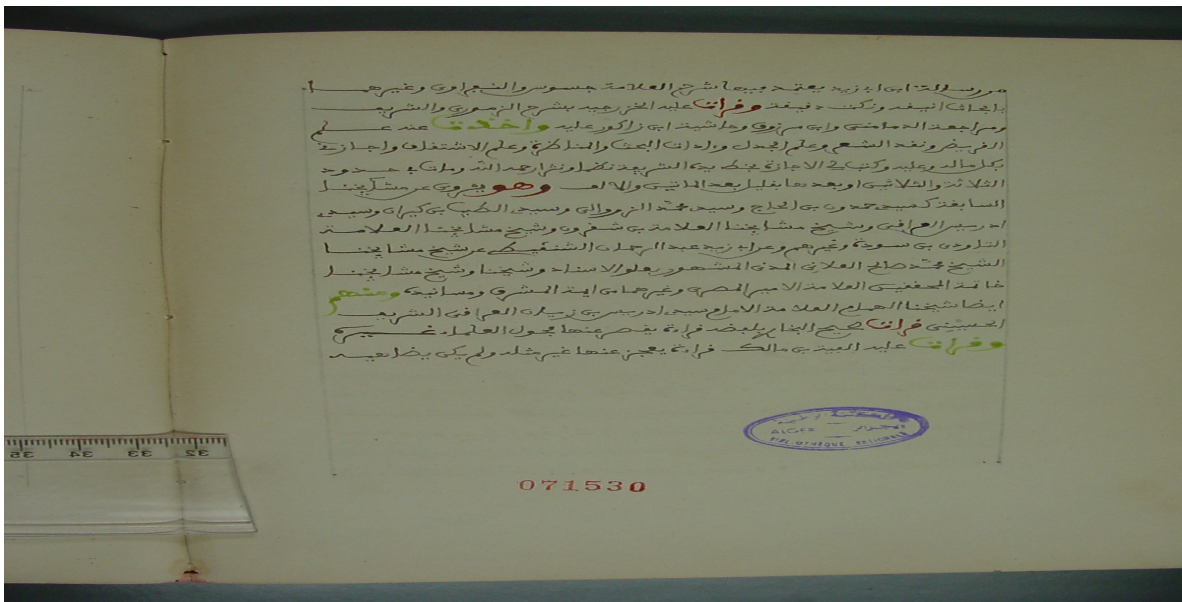 من رسالة ابن ابي زيد بعقد فيها شرح العلامة جسوس والنفراوي وغيرهما
بابحاث انيقة ونكت دقيقة وقرأت عليه الخزرجية بشرح الزموري والشريف
ومراجعة الدماميني وابن مرزوق وحاشية ابن زاكور عليه واخذت عنه علم
القريض ونقد الشعر وعلم الجدل وءاداب البحث والمناظرة وعلم الاشتقاق واجازني
بكل ماله وعليه وكتب لي الاجازة بخط يده الشريفة نظما ونثرا رحمه الله ومات في حدود
الثلاثة والثلاثين او بعدها بقليل بعد الماتين والالف وهو يروي عن مشايخنا
السابقة كسيدي حمدون بن الحاج وسيدي محمد الزروالي وسيدي الطيب بن كيران وسيدي
ادريس العراقي وشيخ مشايخنا العلامة بن شقرون وشيخ مشايخنا العلامة
التاودي بن سودة وغيرهم وعن ابي زيد عبد الرحمان الشنقيطي عن شيخ مشايخنا
الشيخ محمد صالح الفلاني المدني المشهور بعلو الاسناد وشيخنا وشيخ مشايخنا
خاتمة المحققين العلامة الامير المصري وغيرهما من ايمة المشرق ومسانيده ومنهم
ايضا شيخنا الهمام العلامة الامام سيدي ادريس بن زيان العراقي الشريف
الحسيني قرأت صحيح البخاري بلفظه قراءة يقصر عنها فحول العلماء غيره
وقرأت عليه الفية بن مالك قراءة يعجز عنها غير مثله ولم يكن يضاهيه
ALGER
BIBLIOTHEQUE NATIONALE
071530
35 34 33 32